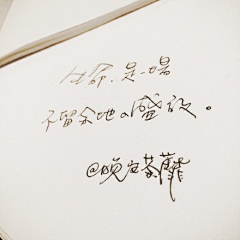 生命．是一場
不留余地の盛放。
@晚安荼蘼